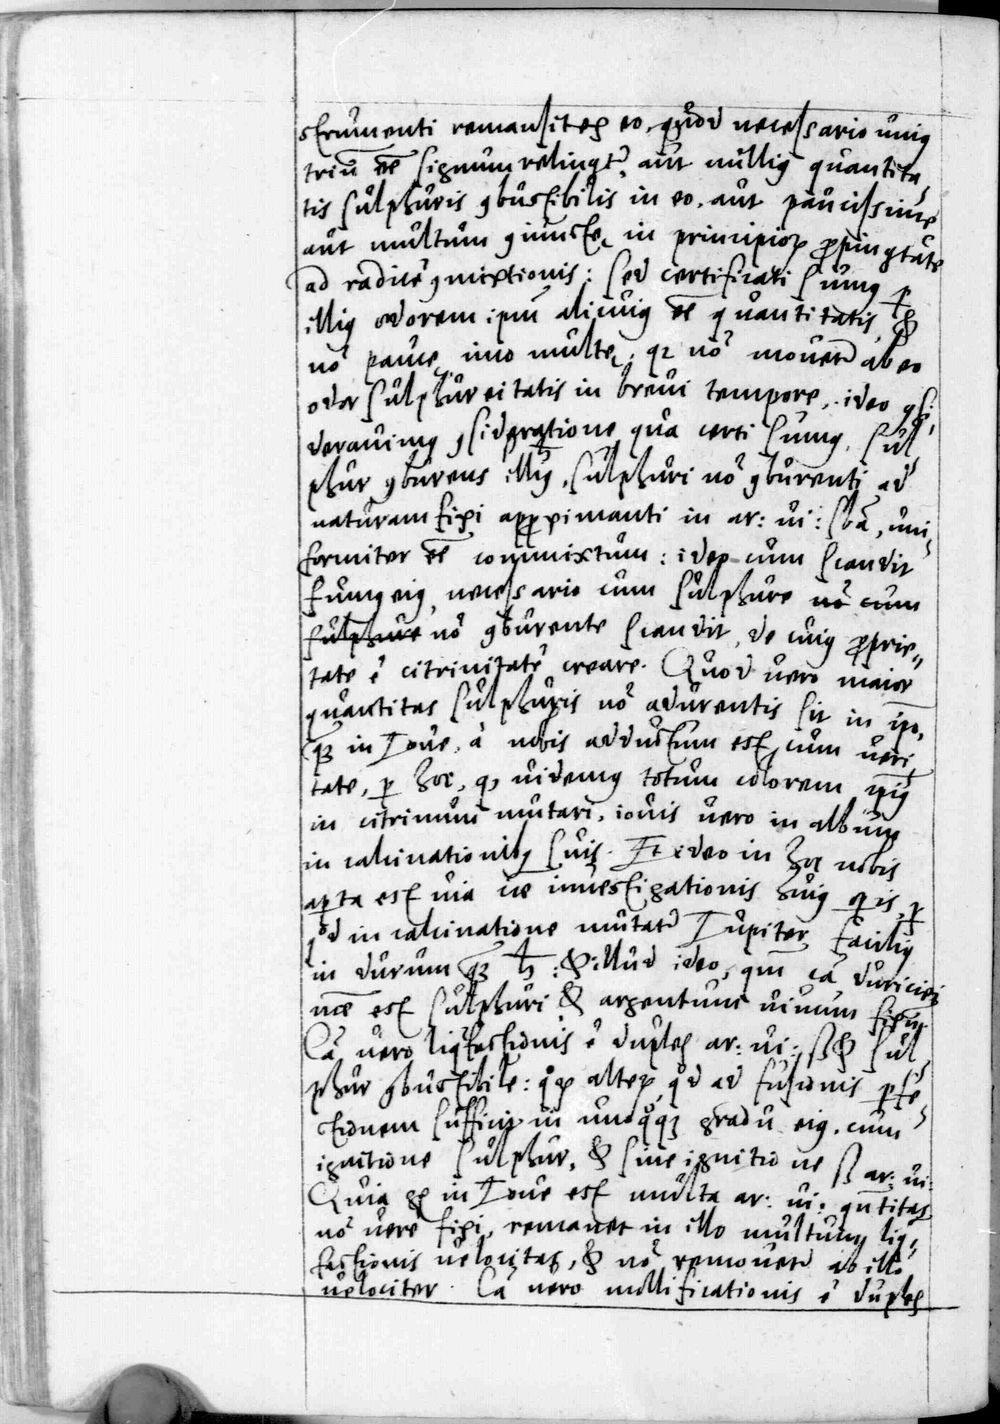 strumenti remansit ex eo, quod necessario unius
triū eē signum relinqt̃, aut nullius quantita,
tis sulphuris ꝯbustibilis in eo, aut paucissime
aut multum ꝯiuncte in principioꝝ ꝓpinqtate
ad radicē ꝯmixtionis: sed certificati sumus ꝑ
illius odorem ipm̄ alicuius eē quantitatis, &
nō pauce, imo multe: qꝛ nō movet̃ ab eo
odor sulphureitatis in brevi tempore, ideo ꝯsi,
deravimus ꝯsideratione qua certi sumus, sul,
phur ꝯburens illius, sulphuri nō ꝯburenti ad
naturam fixi appropximanti in ar: vi: sbā, uni,
formiter eē commixtum: ideo cum scandit
fumus eius, necessario cum sulphure nō cum
sulphure nō ꝯburente scandit, de cuius ꝓprie,,
tate ē citrinitatē creare. Quod vero maior
quantitas sulphuris nō adurentis sit in ip̄o,
qꝫ in Iove, à nobis adductum est, cum veri
tate, ꝑ hoc, qꝫ videmus totum colorem ip̄ius
in citrinum mutari, iovis vero in album
in calcinationibꝫ suis. Et ideo in hoc nobis
aꝑta est via investigationis huius oꝑis, ꝑ
qd in calcinatione mutat̃ Iupiter facilius
in durum qꝫ ♄: & illud ideo, qm̄ cā duriciei
nce est sulphuri & argentum vivum fixum
Cā vero liq̃factionis ē duplex ar: vi: ß & sul,
phur ꝯbustibile: quoꝝ alteꝝ, qd ad fusionis ꝑfe,
ctionem sufficit in unoquoqꝫ gradu eius, cum
ignitione sulphur, & sine ignitione ß ar: vi:
Quia gͦ in Iove est multa ar: vi: qn̄titas
nō vere fixi, remanet in illo multum liq,
factionis velocitas, & nō removet̃ ab illo
velociter. Cā vero mollificationis ē duplex